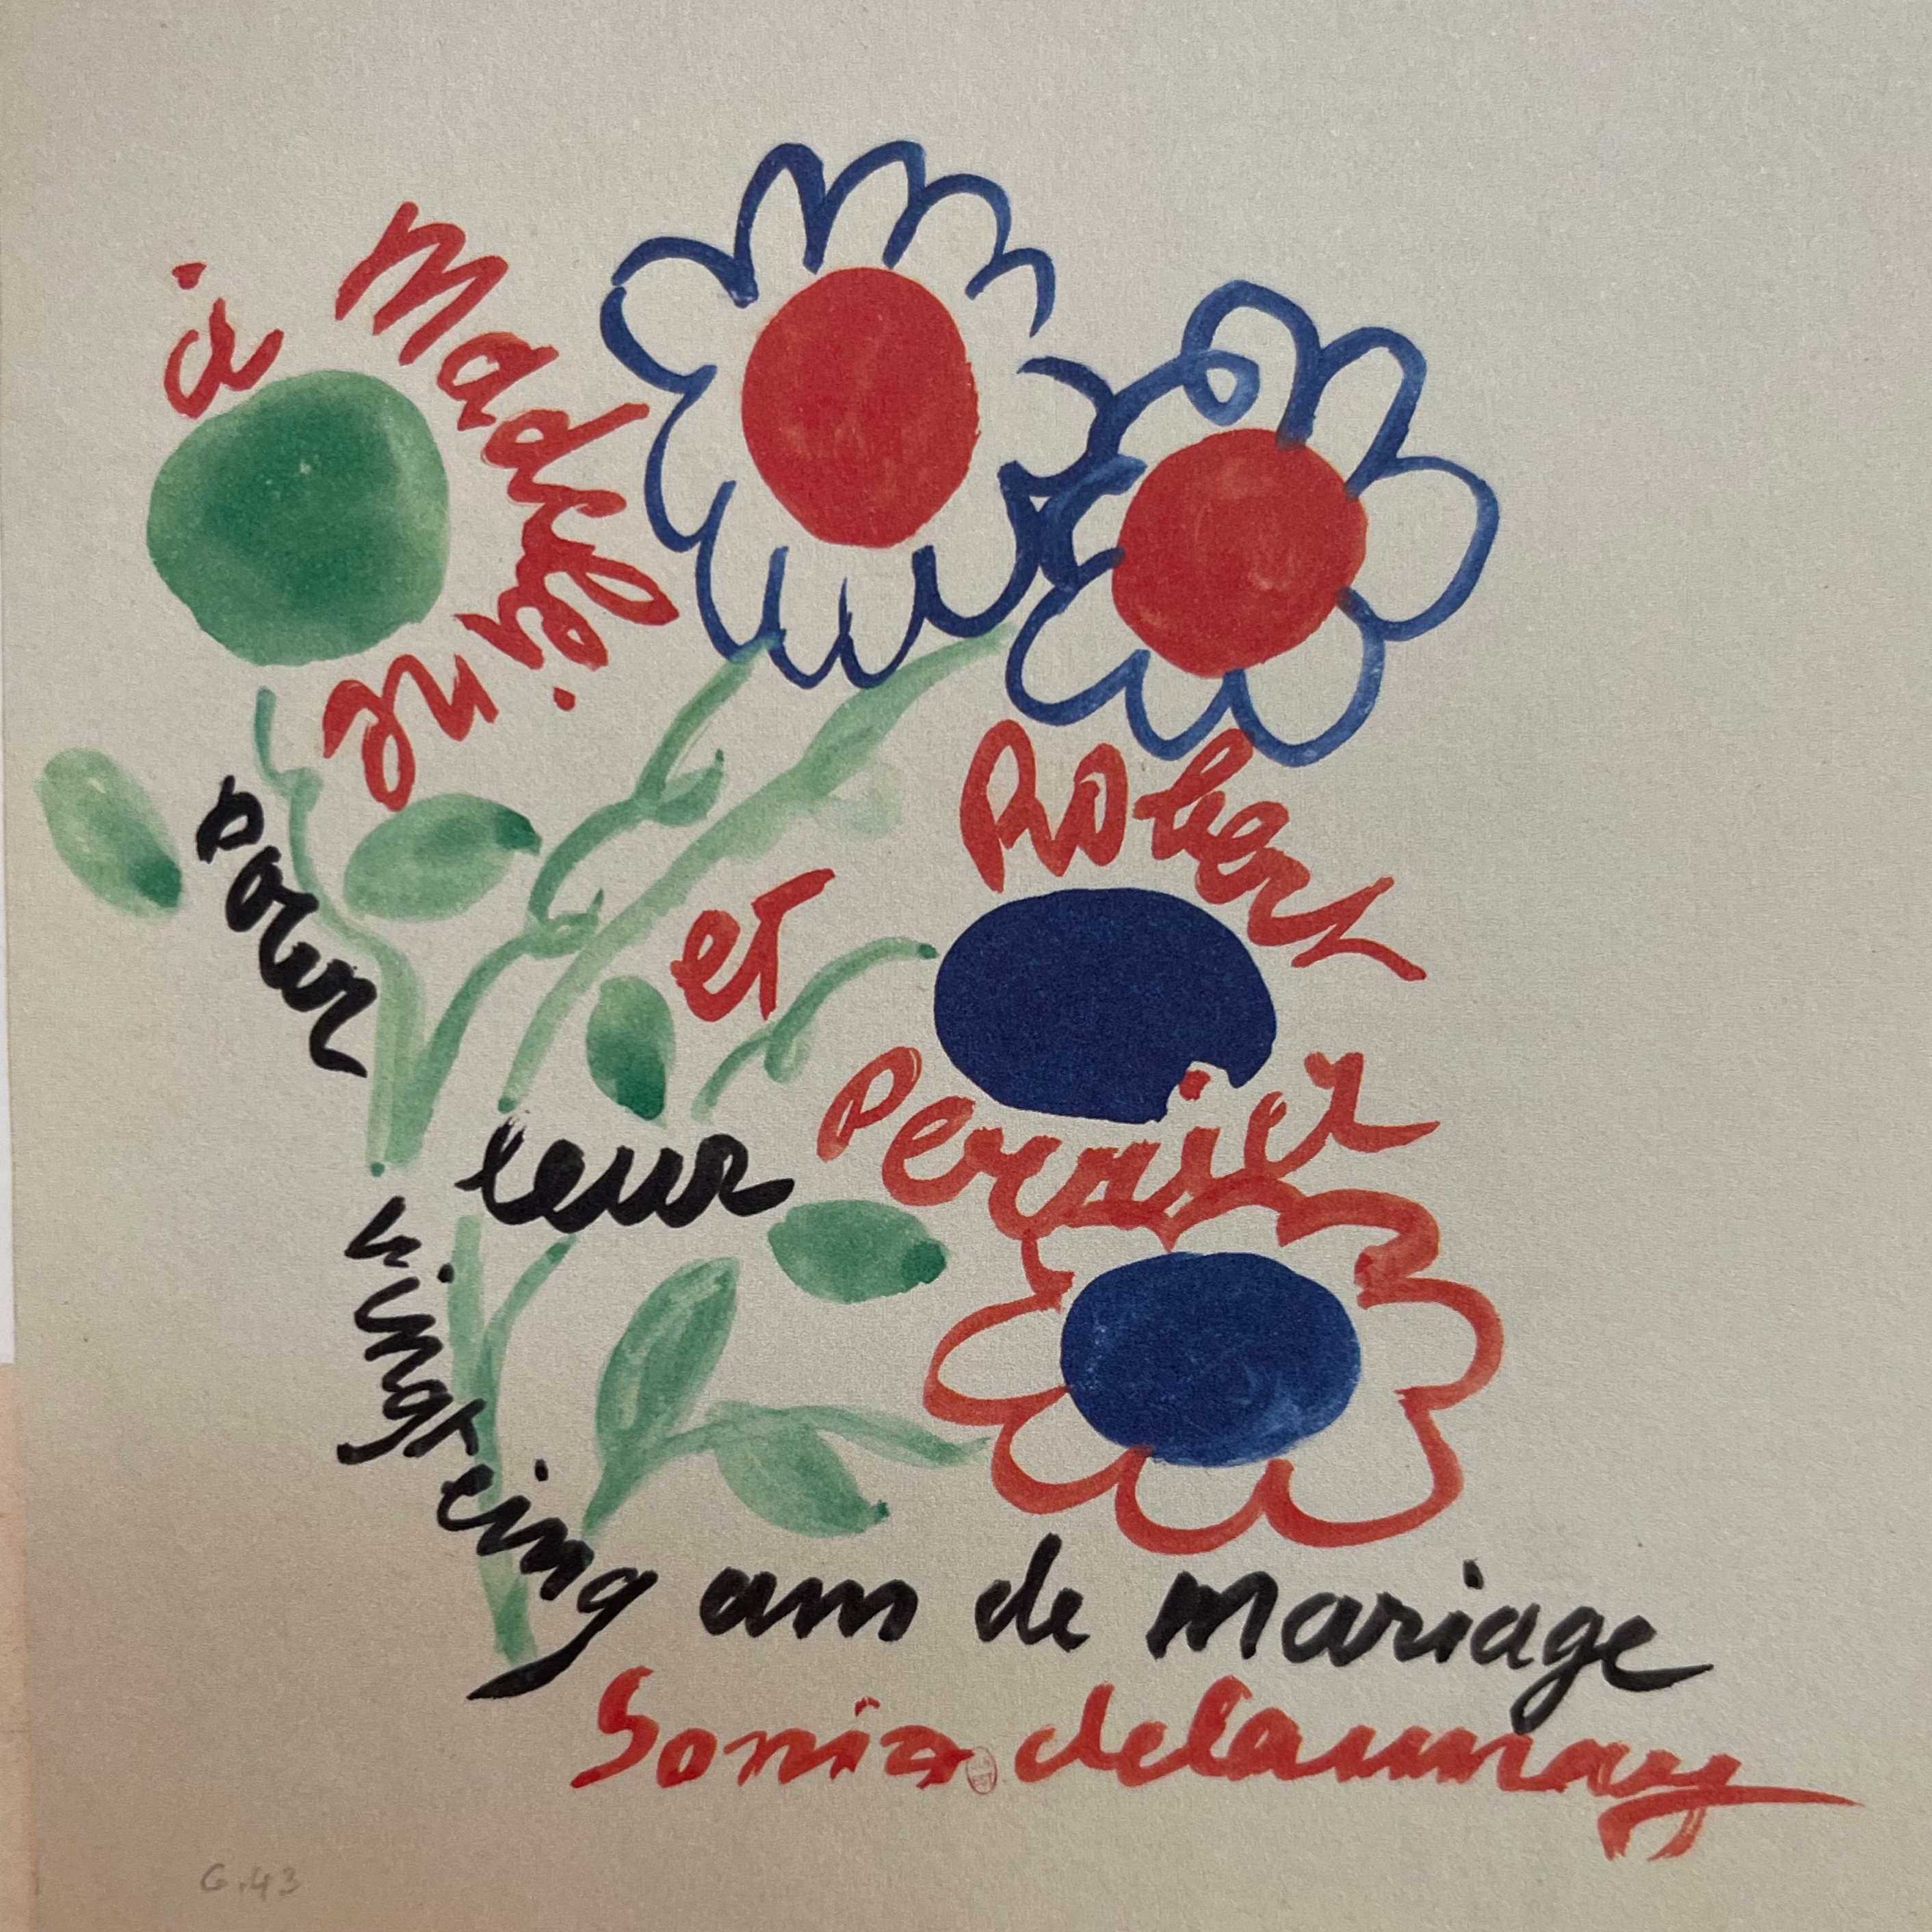 à Madeleine
et
Robert
Perrier
pour
leur
vingt cinq ans de mariage
Sonia delaunay
6.43